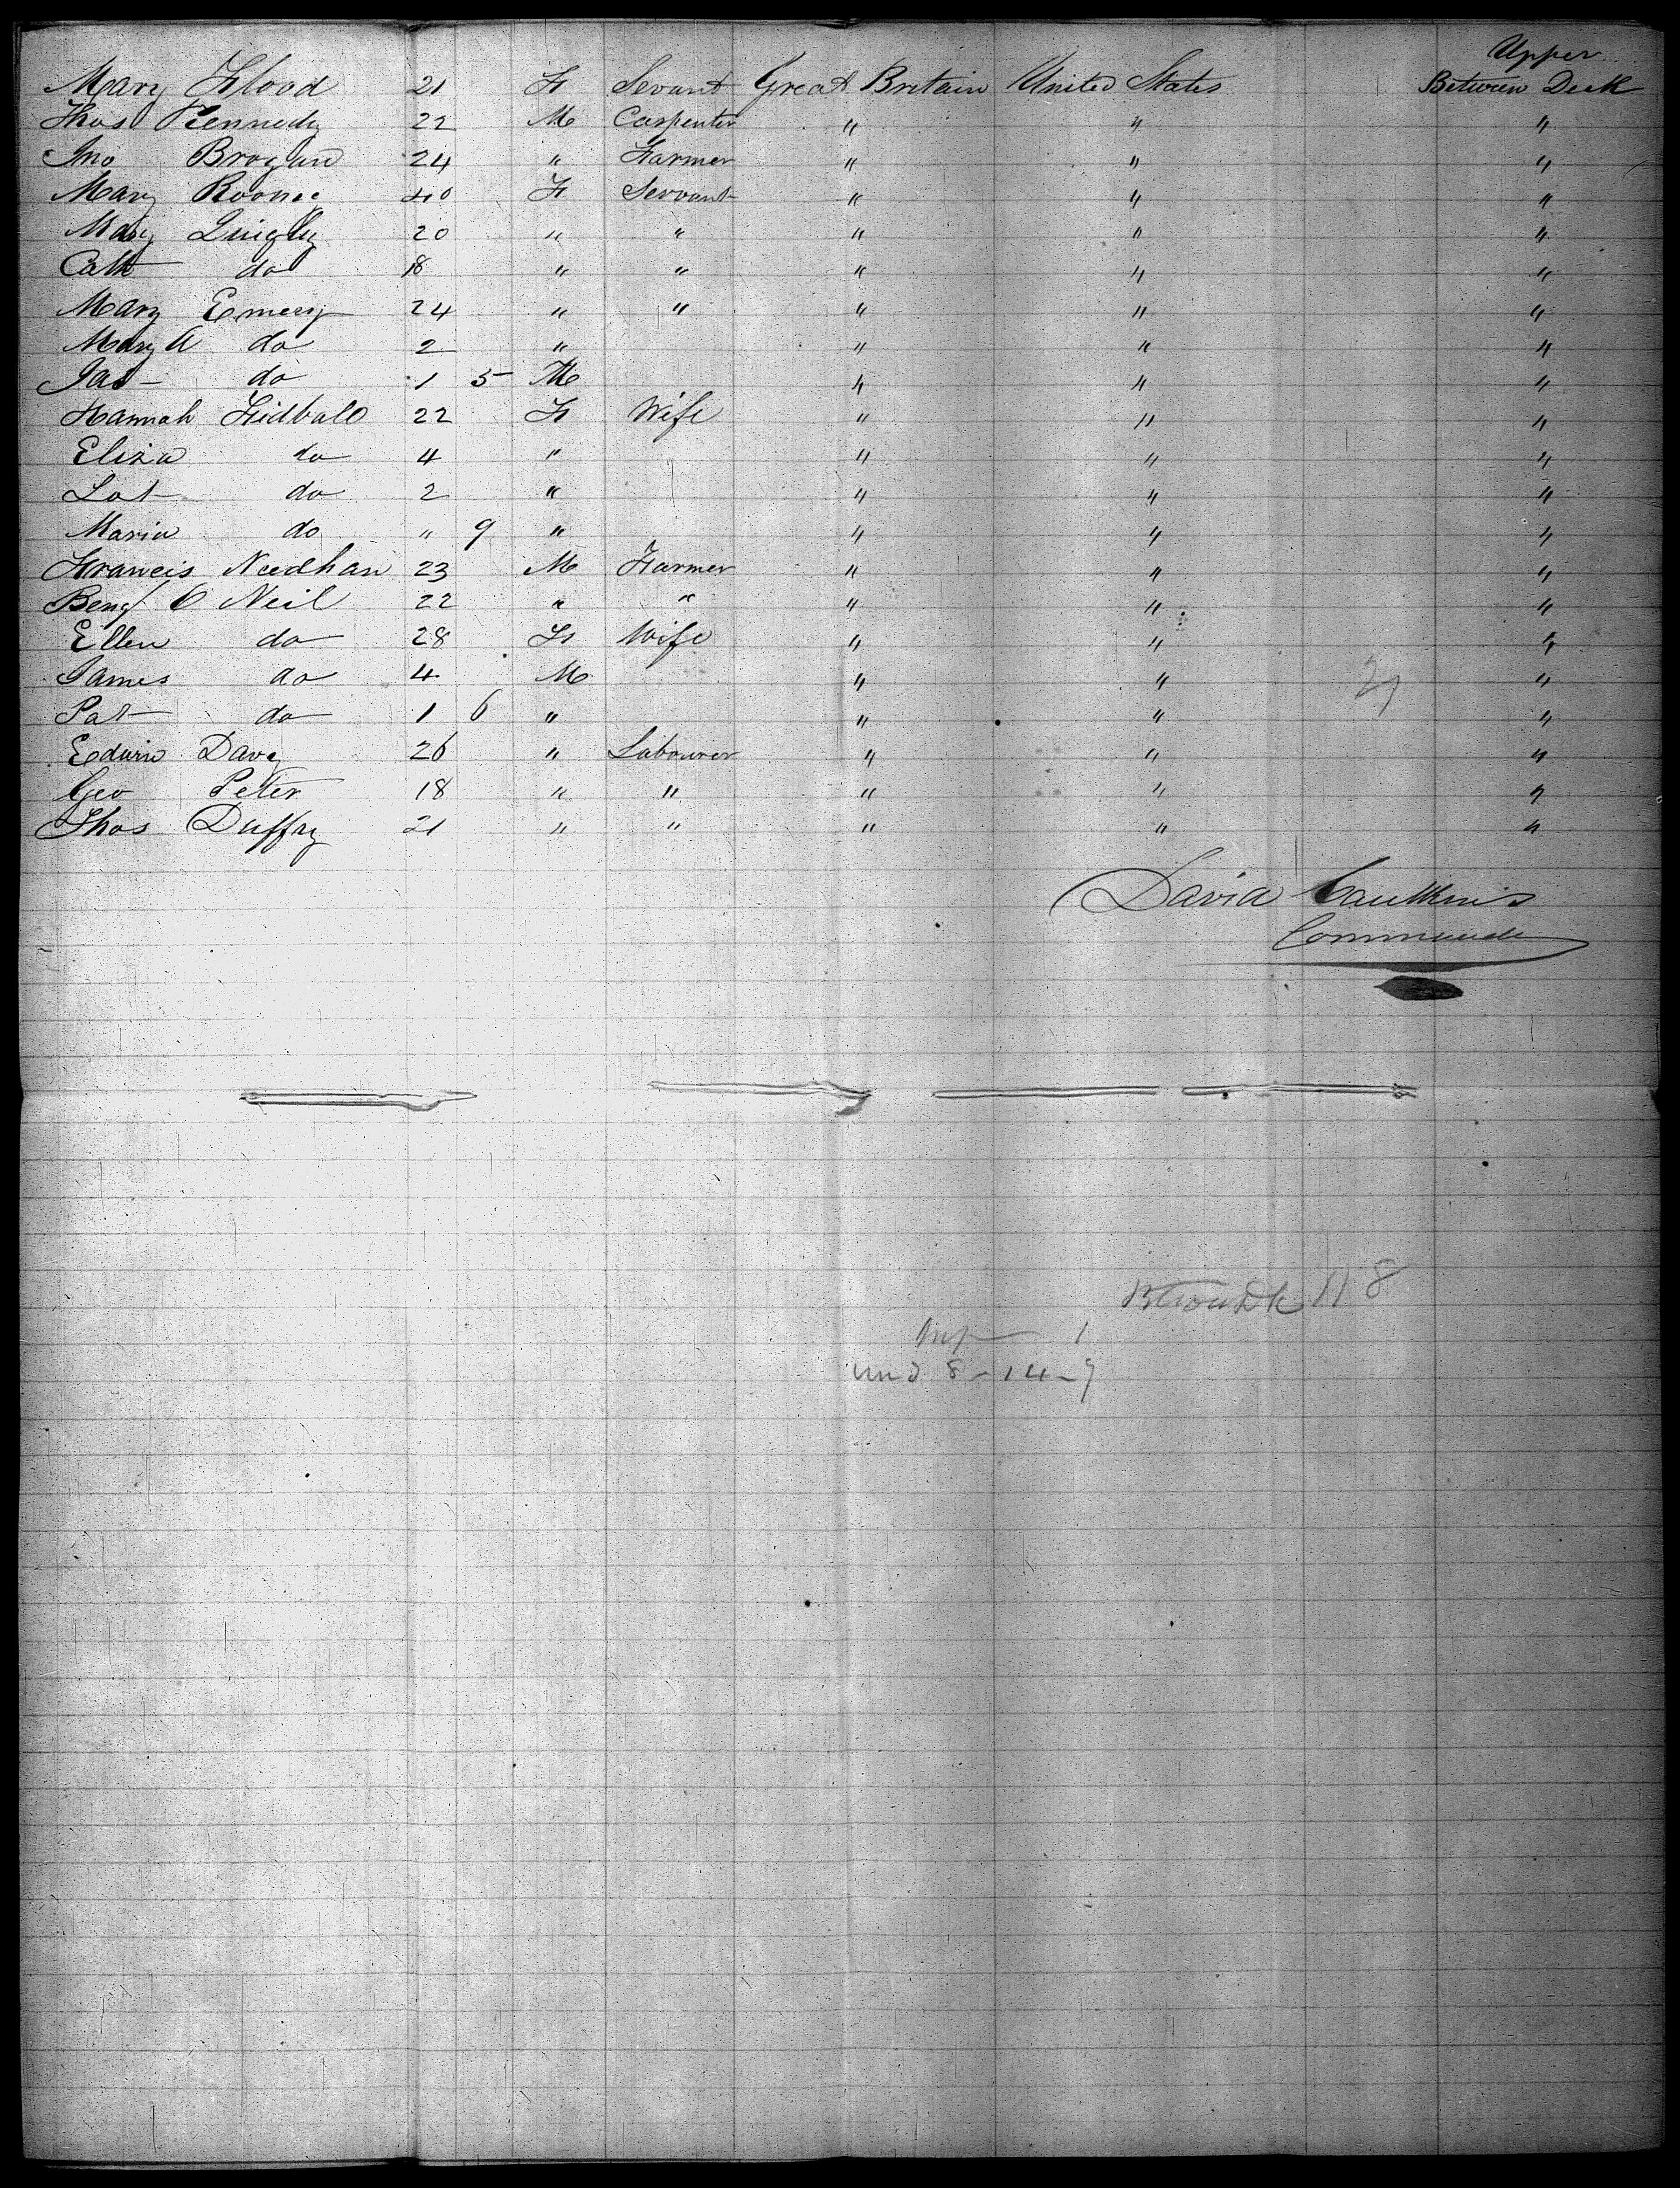 Upper
Mary Flood 21 F Servant Great Britain United States Between Deck
Thos Kennedy 22 M Carpenter " " "
Jno Brogan 24 " Farmer " " "
Mary Rooney 40 F Servant " " "
Mary Quigly 20 " " " " "
Cath do 18 " " " " "
Mary Emery 24 " " " " "
Mary A do 2 " " " "
Jas do 1 5 M " " "
Hannah 22 F Wife " " "
Eliza do 4 " " " "
Lot do 2 " " " "
Maria do " 9 " " " "
Francis Needham 23 M Farmer " " "
Benj O Neil 22 " " " " "
Ellen do 28 F Wife " " "
James do 4 M " " "
Pat do 1 6 " " " "
Edwin Davy 26 " Labourer " " "
Geo Peter 18 " " " " "
Thos Duffy 21 " " " " "
David
Commander
118
1
und 8 - 14 - 9